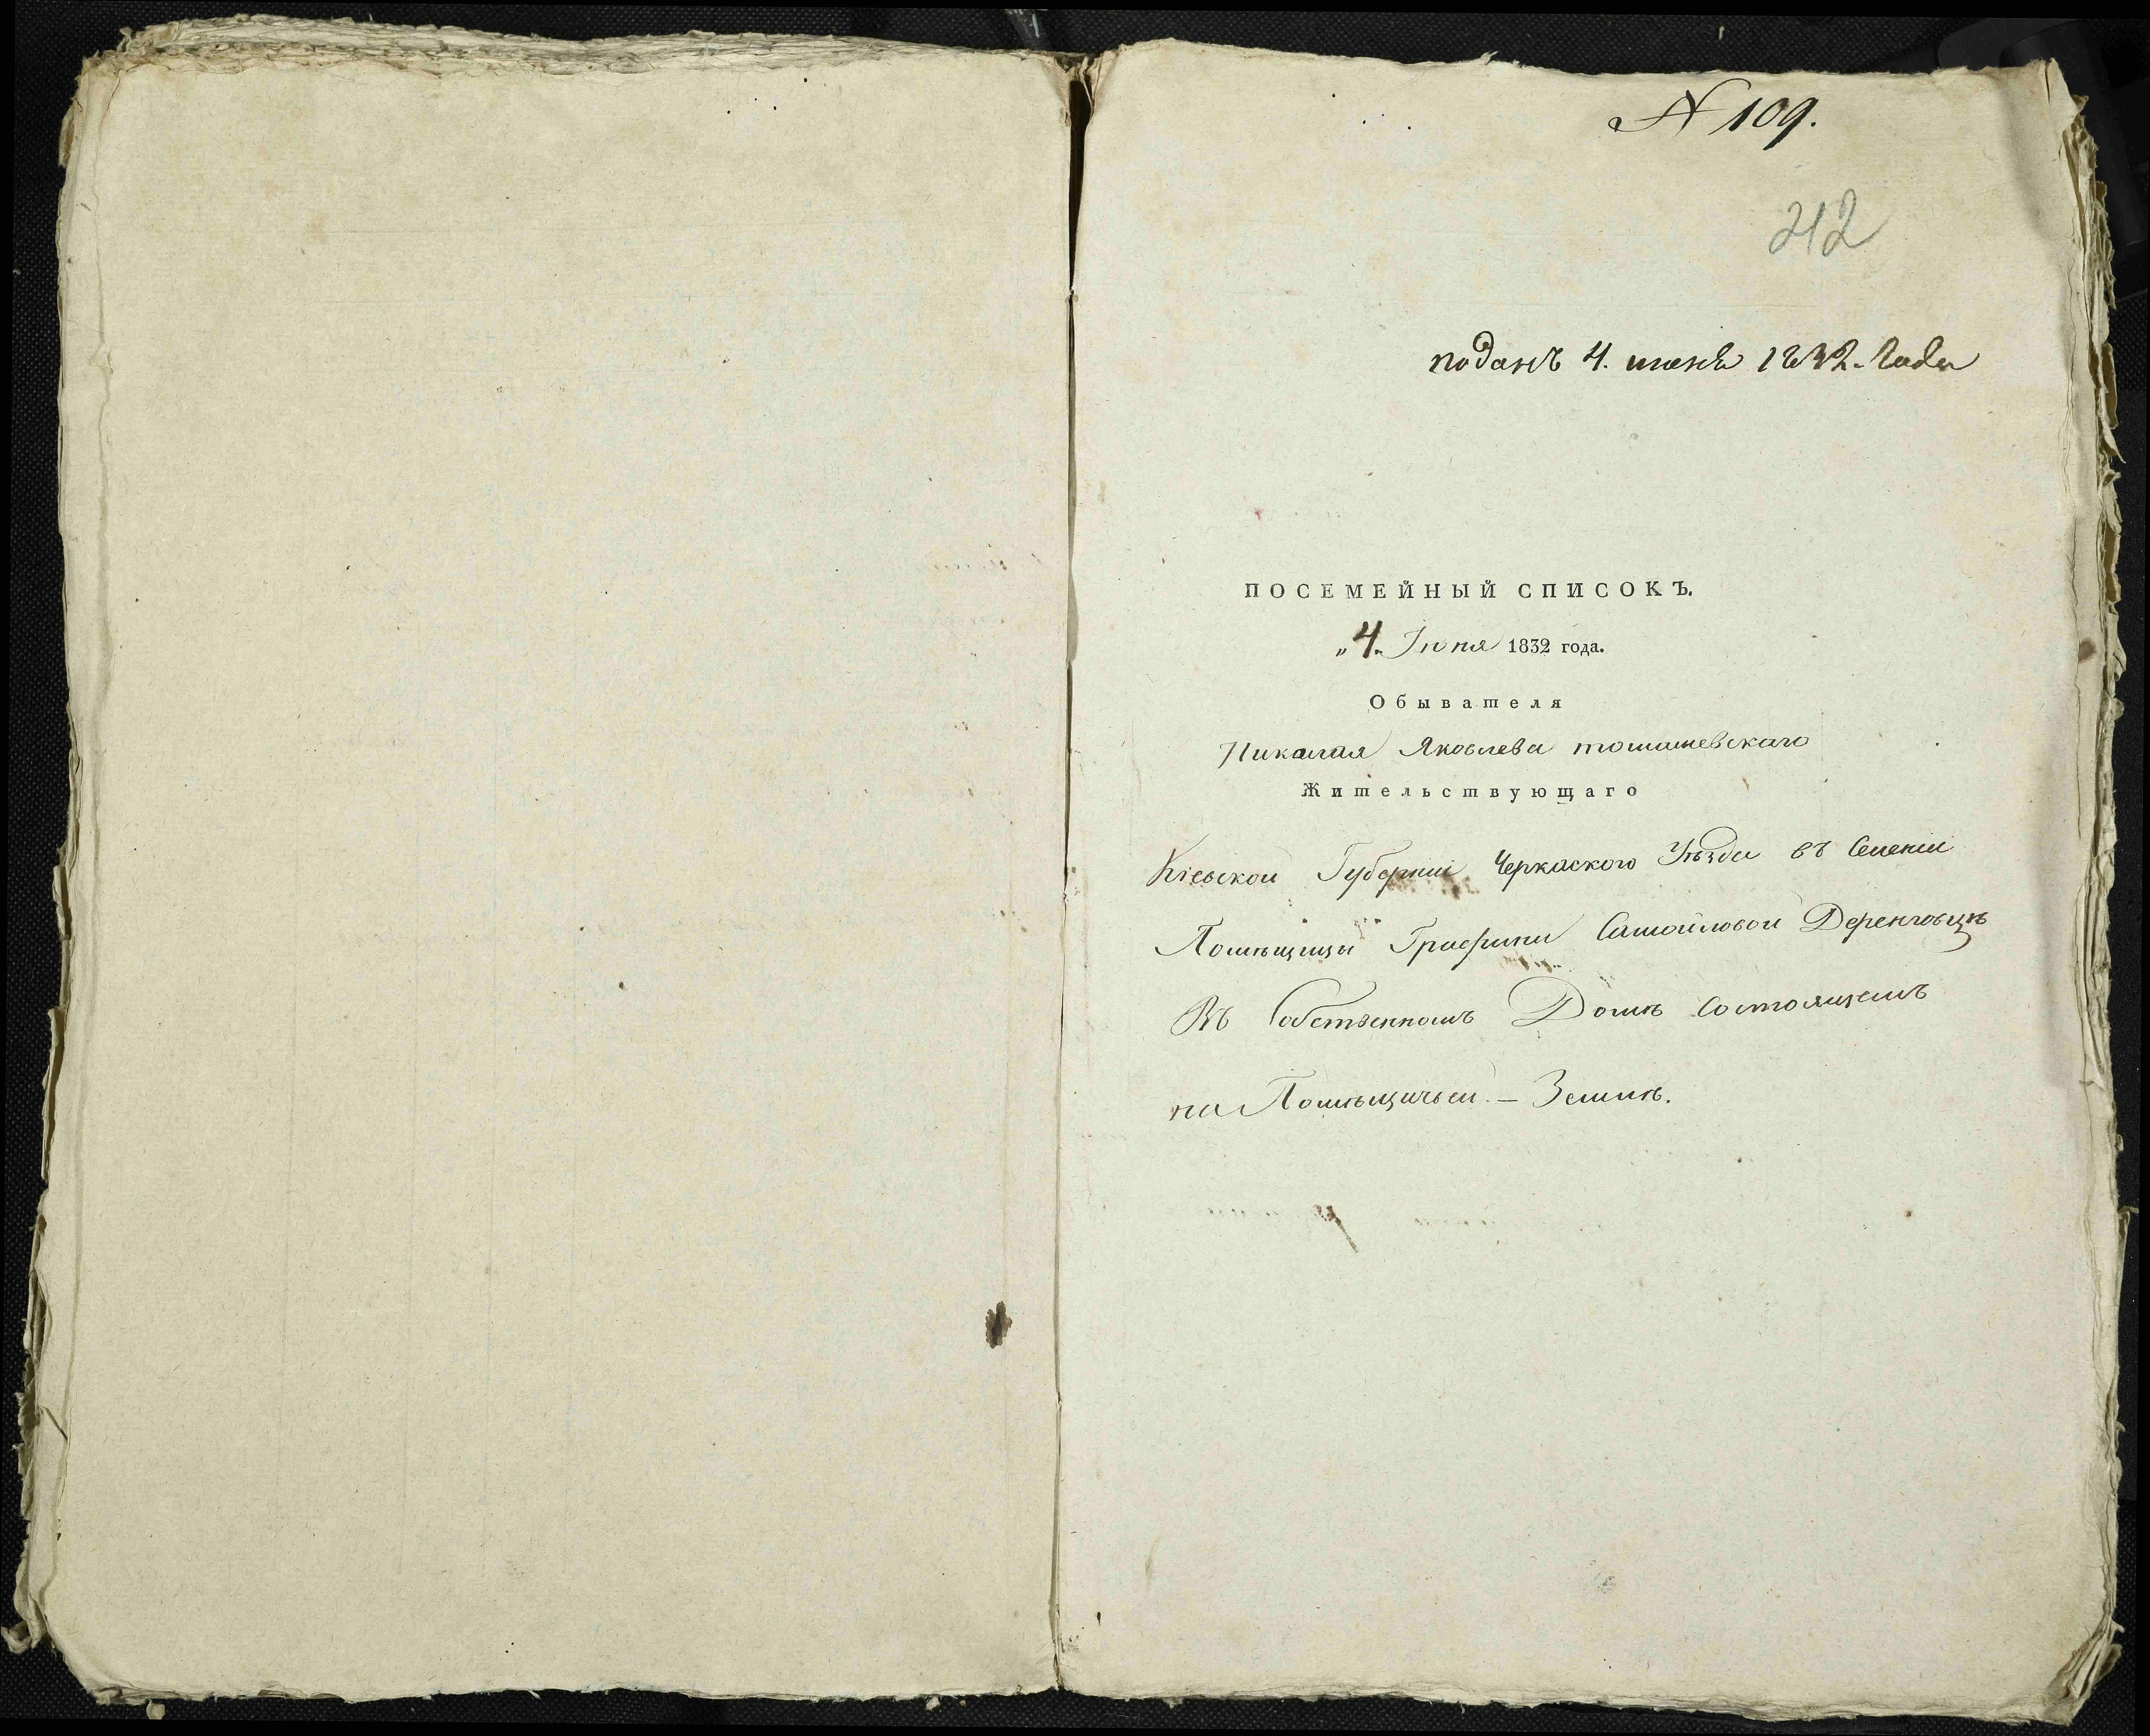 № 109.
212
поданъ 4. июня 1832. года
ПОСЕМЕЙНЫЙ СПИСОКЪ.
„4„ Іюня 1832 года.
Обывателя
Николая Яковлева томашевскаго
Жительствующаго
Кіевской Губерніи Черкаского Уѣзда въ Селеніи
Помѣщицы Графини Самойловой Деренковцѣ
Въ Собственномъ Домѣ Состоящемъ
на Помѣщичьей. — Землѣ.